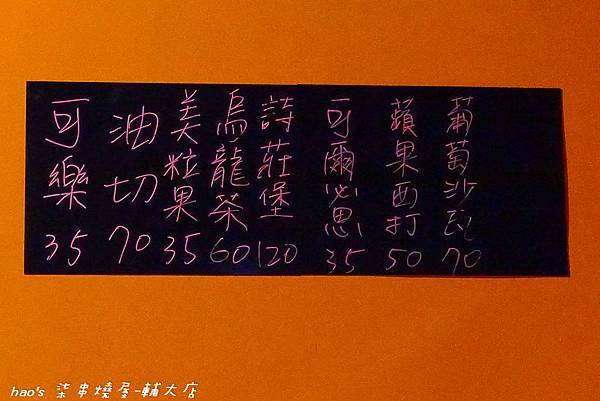 葡萄沙瓦 70
蘋果西打 50
可爾必思 35
詩莊堡 120
烏龍茶 60
美粒果 35
油切 70
可樂 35
hao's 柒串燒屋-輔大店